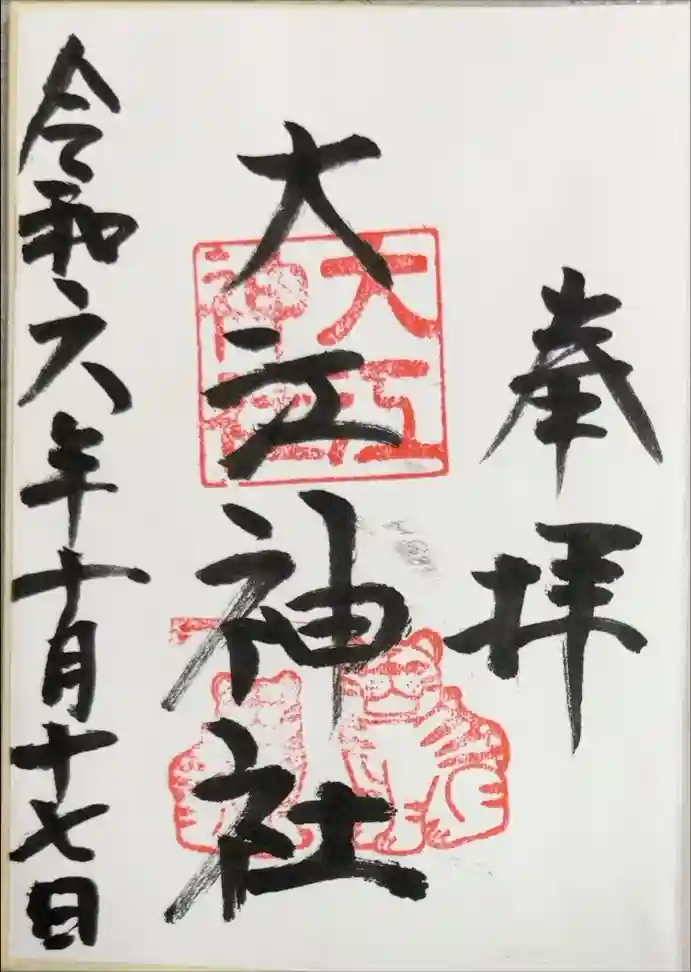 奉拝
大江神社
大江
神社
令和六年十月十七日